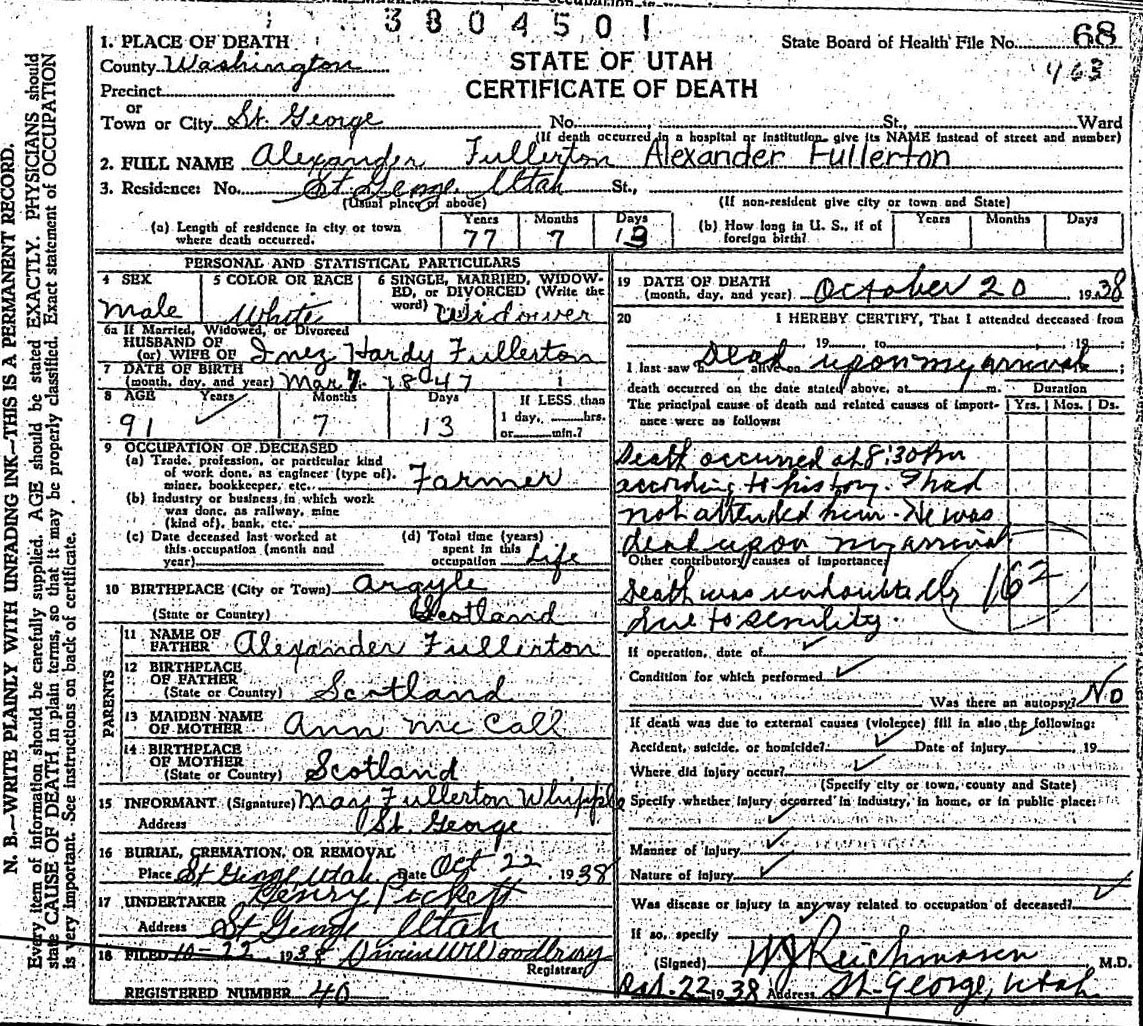 3804501
1. PLACE OF DEATH
County Washington
Precinct
or
Town or City St. George No. St., Ward
STATE OF UTAH
CERTIFICATE OF DEATH
State Board of Health File No. 68
463
(If death occurred in a hospital or institution, give its NAME instead of street and number)
2. FULL NAME Alexander Fullerton Alexander Fullerton
3. Residence: No. St George Utah St.,
(Usual place of abode) (If non-resident give city or town and State)
(a) Length of residence in city or town where death occurred. Years 77 Months 7 Days 13
(b) How long in U. S., if of foreign birth? Years Months Days
PERSONAL AND STATISTICAL PARTICULARS
4 SEX Male
5 COLOR OR RACE White
6 SINGLE, MARRIED, WIDOWED, or DIVORCED (Write the word) Widower
6a If Married, Widowed, or Divorced
HUSBAND OF
(or) WIFE OF Inez Hardy Fullerton
7 DATE OF BIRTH
(month, day, and year) Mar 7. 1847
8 AGE Years 91 Months 7 Days 13
If LESS than
1 day, hrs.
or min.?
9 OCCUPATION OF DECEASED
(a) Trade, profession, or particular kind
of work done, as engineer (type of),
miner, bookkeeper, etc. Farmer
(b) Industry or business in which work
was done, as railway, mine
(kind of), bank, etc.
(c) Date deceased last worked at
this occupation (month and
year)
(d) Total time (years)
spent in this
occupation Life
10 BIRTHPLACE (City or Town) Argyle
(State or Country) Scotland
PARENTS
11 NAME OF
FATHER Alexander Fullerton
12 BIRTHPLACE
OF FATHER
(State or Country) Scotland
13 MAIDEN NAME
OF MOTHER Ann McCall
14 BIRTHPLACE
OF MOTHER
(State or Country) Scotland
15 INFORMANT (Signature) May Fullerton Whipple
Address St. George
16 BURIAL, CREMATION, OR REMOVAL
Place St George Utah Date Oct 22, 1938
17 UNDERTAKER Henry Pickett
Address St George Utah
18 FILED 10-22 1938 Woodbury
Registrar
REGISTERED NUMBER 40
19 DATE OF DEATH
(month, day, and year) October 20 1938
20 I HEREBY CERTIFY, That I attended deceased from
, 19 , to , 19 ;
I last saw h alive on Dead upon my arrival ;
death occurred on the date stated above, at m. Duration
The principal cause of death and related causes of importance were as follows: Yrs. Mos. Ds.
Death occurred at 8:30 Pm
according to history. I had
not attended him. He was
dead upon my arrival
Other contributory causes of importance
Death was undoubtedly 162
due to senility.
If operation, date of
Condition for which performed
Was there an autopsy? NO
If death was due to external causes (violence) fill in also the following:
Accident, suicide, or homicide? Date of injury , 19
Where did injury occur?
(Specify city or town, county and State)
Specify whether injury occurred in industry, in home, or in public place:
Manner of injury
Nature of injury
Was disease or injury in any way related to occupation of deceased?
If so, specify
(Signed) WJ Reichmann M.D.
Oct. 22 1938 Address St. George, Utah
N. B.—WRITE PLAINLY WITH UNFADING INK—THIS IS A PERMANENT RECORD.
Every item of information should be carefully supplied. AGE should be stated EXACTLY. PHYSICIANS should
state CAUSE OF DEATH in plain terms, so that it may be properly classified. Exact statement of OCCUPATION
is very important. See instructions on back of certificate.